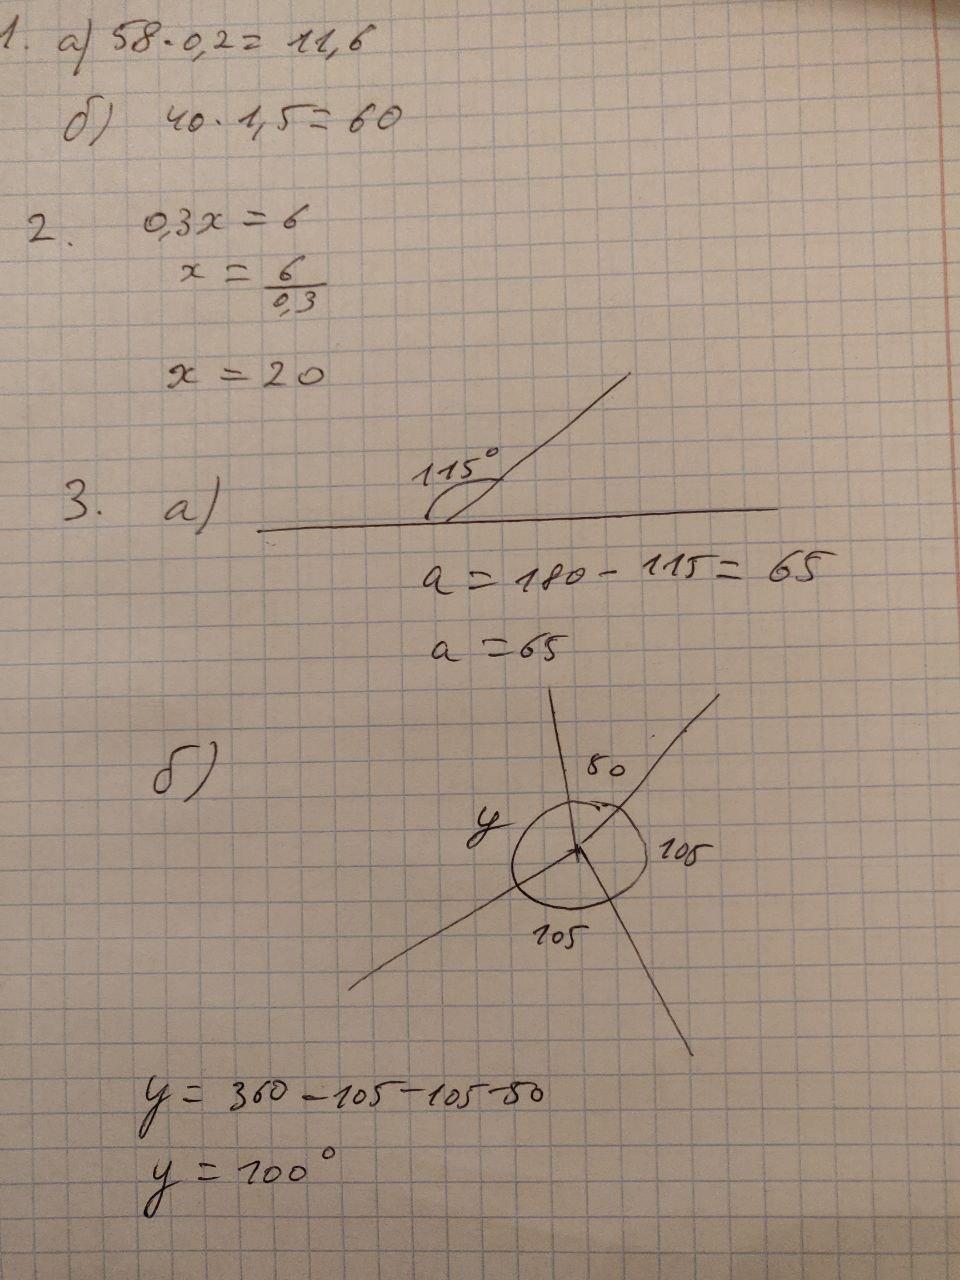 1. а) 58·0,2 = 11,6
б) 40·1,5 = 60
2. 0,3x = 6
x = 6/0,3
x = 20
115°
3. а)
a = 180 - 115 = 65
a = 65
б)
50
y
105
105
y = 360 - 105 - 105 - 50
y = 100°